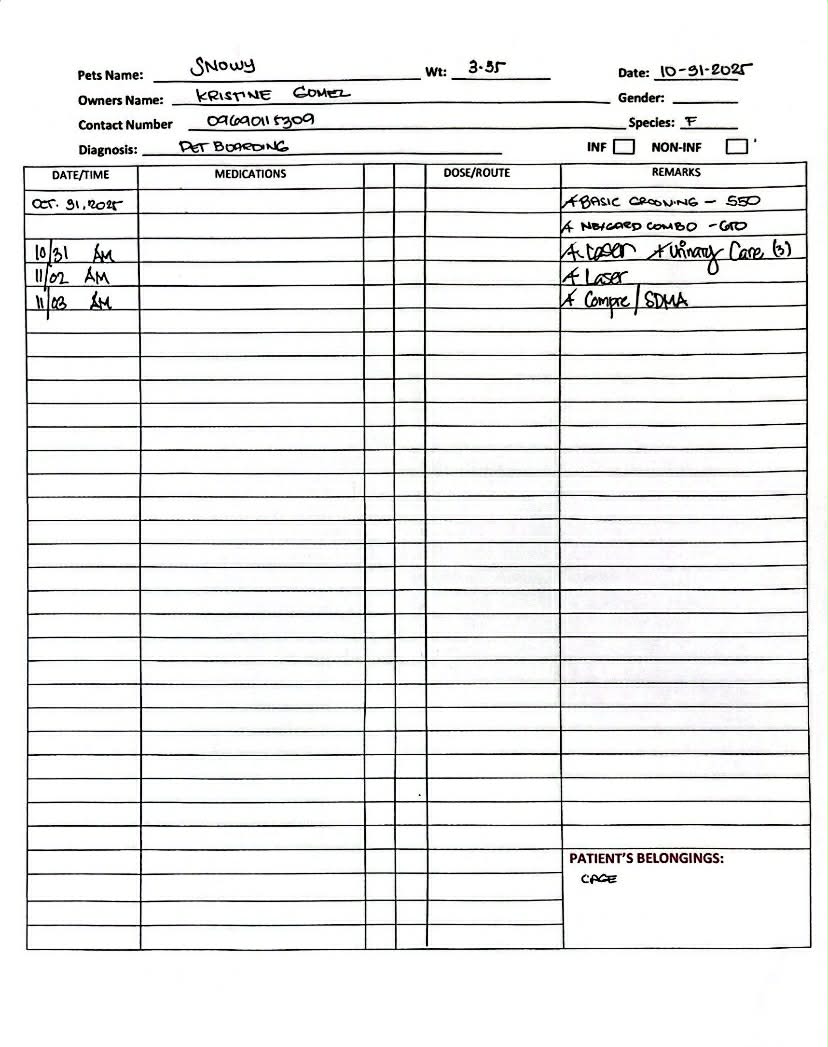 Pets Name: SNOWY Wt: 3.55 Date: 10-31-2025
Owners Name: KRISTINE GOMEZ Gender:
Contact Number 09690115309 Species: F
Diagnosis: PET BOARDING INF NON-INF
DATE/TIME MEDICATIONS DOSE/ROUTE REMARKS
OCT. 31, 2025 BASIC GROOMING - 550
NEXGARD COMBO -
10/31 AM Laser Urinary Care (3)
11/02 AM Laser
11/03 AM Compre / SDMA
PATIENT'S BELONGINGS:
CAGE